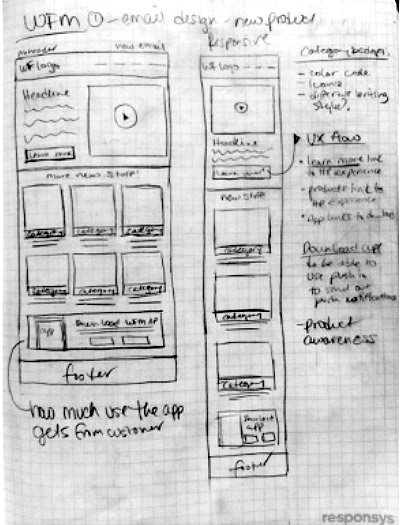 WFM ① - email design - new product
Responsive
preheader
view email
WF logo
Headline
Learn more
more new stuff!
category
category
category
category
category
category
app
Download WFM app
footer
how much use the app
gets from customer
WF logo
Headline
Learn more
new stuff
category
category
category
Download
app
footer
Category badges.
- color code
- iconic
- different writing
style?
UX flow
- Learn more link
to HP experience
- product link to
HP experience
- App links to
Download app
to be able to
use push in
to send out
push notifications
- product
awareness
responsys